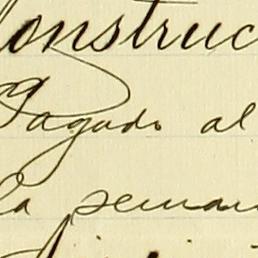 onstruc
Pagado al
la seman